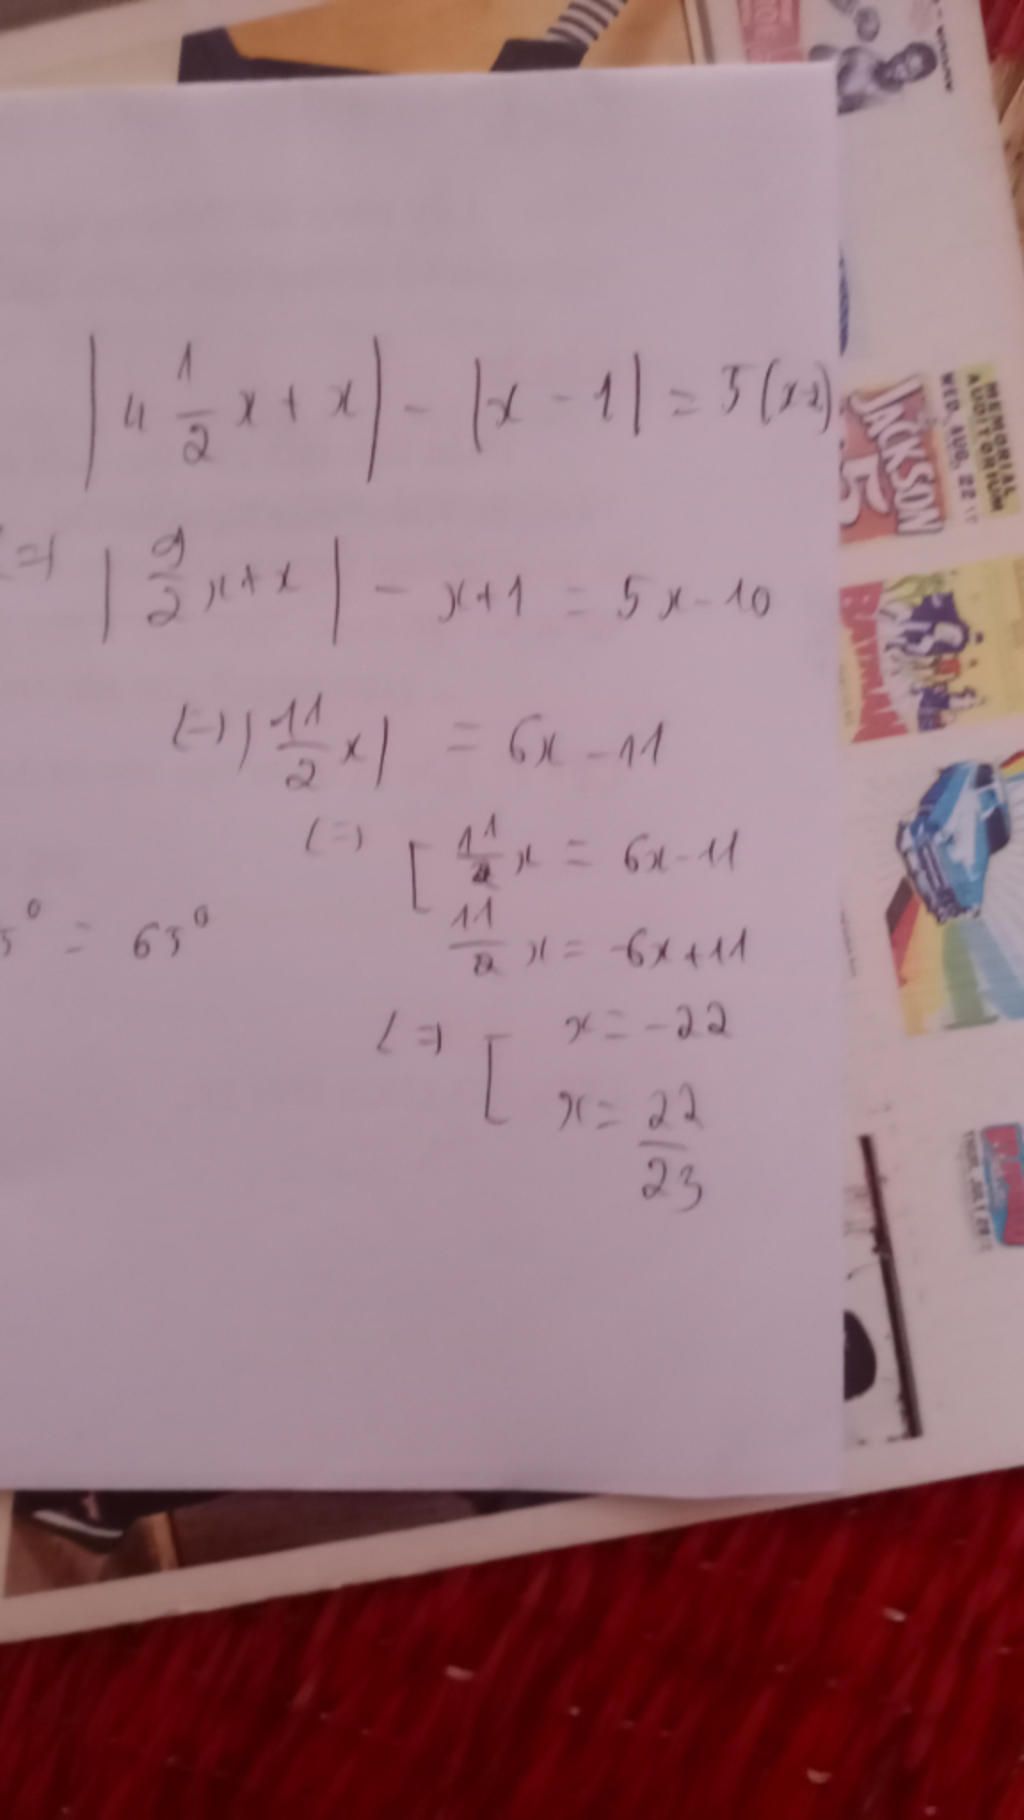 |4 1/2 x + x| - |x - 1| = 5(x-2)
<=> |9/2 x + x| - x + 1 = 5x - 10
<=> |11/2 x| = 6x - 11
<=> [ 11/2 x = 6x - 11
11/2 x = -6x + 11
5° = 65°
<=> [ x = -22
x = 22/23
MEMORIAL
AUDITORIUM
WED. AUG. 22
JACKSON
5
BATMAN